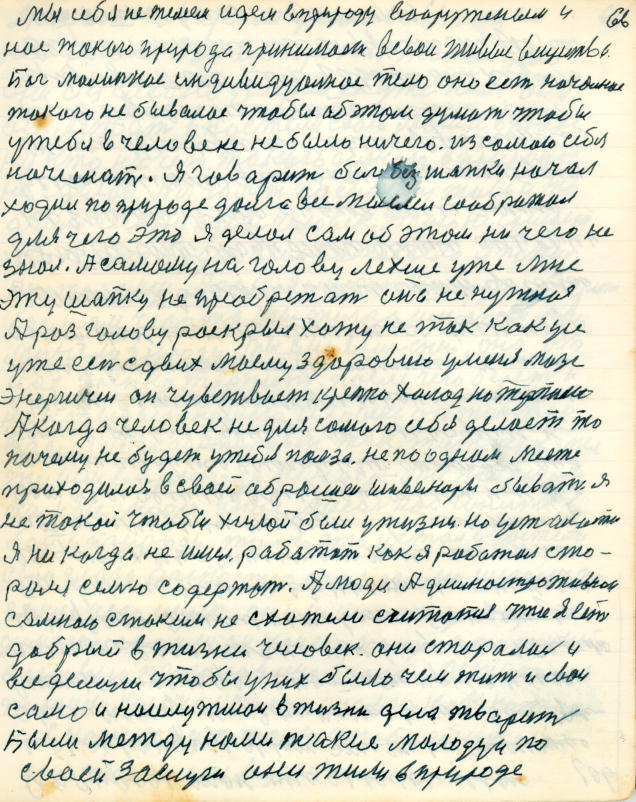 66
Мы себя не телем идем в природу вооруженым и
ное такого природа принимает в свои живое вещества.
Бог молитное индивидуалное тело оно ест началное
такого не бывалое чтобы об этом думат чтобы
у тебя в человеке не было ничего. из самого себя
начинат. Я говарит был без шапки начал
ходил по природе долга все мысли соображал
для чего это я делал сам об этом ни чего не
знал. А самому на голову легше уже мне
эту шапку не преобретат она не нужная
А раз голову раскрыл хожу не так как уси
уже ест сдвих моему здоровию у меня мозг
энергичен он чувствует крепко холад но терпимо
А когда человек не для самого себя делает то
почему не будет у тебя полза. не по одном месте
приходилося в своей обращеи инженером бывать. Я
не такой чтобы хилой был у жизни. но усталости
Я ни когда не имел. работат как я работал ста-
рался семю содержат. А люди Административной
самною с таким не схотели считатся что я ест
добрый в жизни человек. они старалис и
все делали чтобы у них было чем жит и свои
само и наилутшои в жизни дела тварит
Были между нами такие молодуи по
своей заслуги они жили в природе